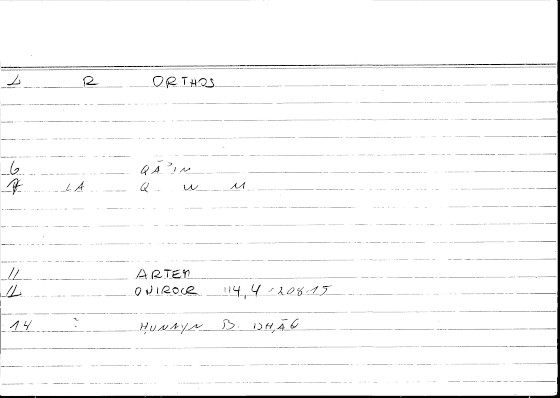 1 R ORTHOS
6 QĀʾIM
7 LA Q W M
11 ARTEM
12 ONIROCR 114,4 - 208.15
14 : HUNAYN B. ISHĀQ